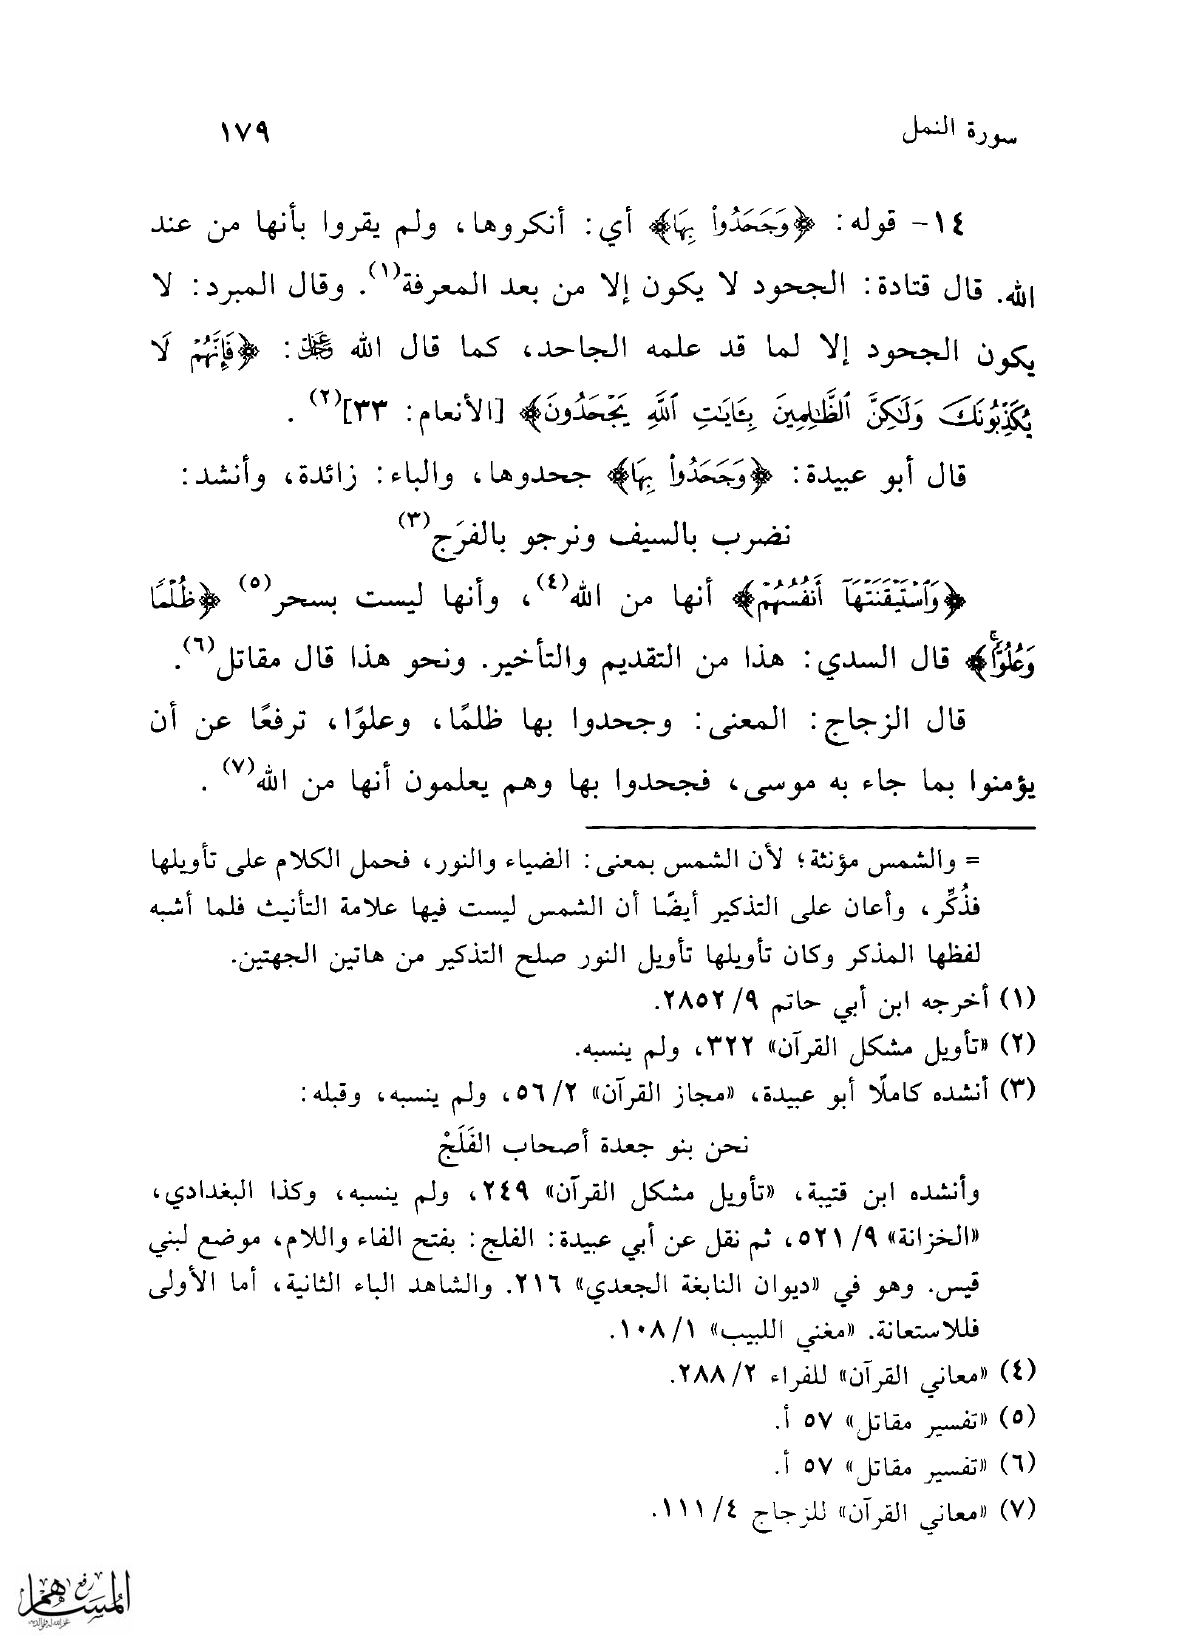 سورة النمل
١٧٩
١٤- قوله: ﴿وَجَحَدُواْ بِهَا﴾ أي: أنكروها، ولم يقروا بأنها من عند
الله. قال قتادة: الجحود لا يكون إلا من بعد المعرفة(١). وقال المبرد: لا
يكون الجحود إلا لما قد علمه الجاحد، كما قال الله عز وجل: ﴿فَإِنَّهُمْ لَا
يُكَذِّبُونَكَ وَلَٰكِنَّ ٱلظَّٰلِمِينَ بِـَٔايَٰتِ ٱللَّهِ يَجْحَدُونَ﴾ [الأنعام: ٣٣](٢) .
قال أبو عبيدة: ﴿وَجَحَدُواْ بِهَا﴾ جحدوها، والباء: زائدة، وأنشد:
نضرب بالسيف ونرجو بالفرَج(٣)
﴿وَٱسْتَيْقَنَتْهَآ أَنفُسُهُمْ﴾ أنها من الله(٤)، وأنها ليست بسحر(٥) ﴿ظُلْمًا
وَعُلُوًّا ۚ﴾ قال السدي: هذا من التقديم والتأخير. ونحو هذا قال مقاتل(٦).
قال الزجاج: المعنى: وجحدوا بها ظلمًا، وعلوًا، ترفعًا عن أن
يؤمنوا بما جاء به موسى، فجحدوا بها وهم يعلمون أنها من الله(٧) .
= والشمس مؤنثة؛ لأن الشمس بمعنى: الضياء والنور، فحمل الكلام على تأويلها
فذُكِّر، وأعان على التذكير أيضًا أن الشمس ليست فيها علامة التأنيث فلما أشبه
لفظها المذكر وكان تأويلها تأويل النور صلح التذكير من هاتين الجهتين.
(١) أخرجه ابن أبي حاتم ٩/ ٢٨٥٢.
(٢) «تأويل مشكل القرآن» ٣٢٢، ولم ينسبه.
(٣) أنشده كاملًا أبو عبيدة، «مجاز القرآن» ٢/ ٥٦، ولم ينسبه، وقبله:
نحن بنو جعدة أصحاب الفَلَجْ
وأنشده ابن قتيبة، «تأويل مشكل القرآن» ٢٤٩، ولم ينسبه، وكذا البغدادي،
«الخزانة» ٩/ ٥٢١، ثم نقل عن أبي عبيدة: الفلج: بفتح الفاء واللام، موضع لبني
قيس. وهو في «ديوان النابغة الجعدي» ٢١٦. والشاهد الباء الثانية، أما الأولى
فللاستعانة. «مغني اللبيب» ١/ ١٠٨.
(٤) «معاني القرآن» للفراء ٢/ ٢٨٨.
(٥) «تفسير مقاتل» ٥٧ أ.
(٦) «تفسير مقاتل» ٥٧ أ.
(٧) «معاني القرآن» للزجاج ٤/ ١١١.
رفع
المساهم